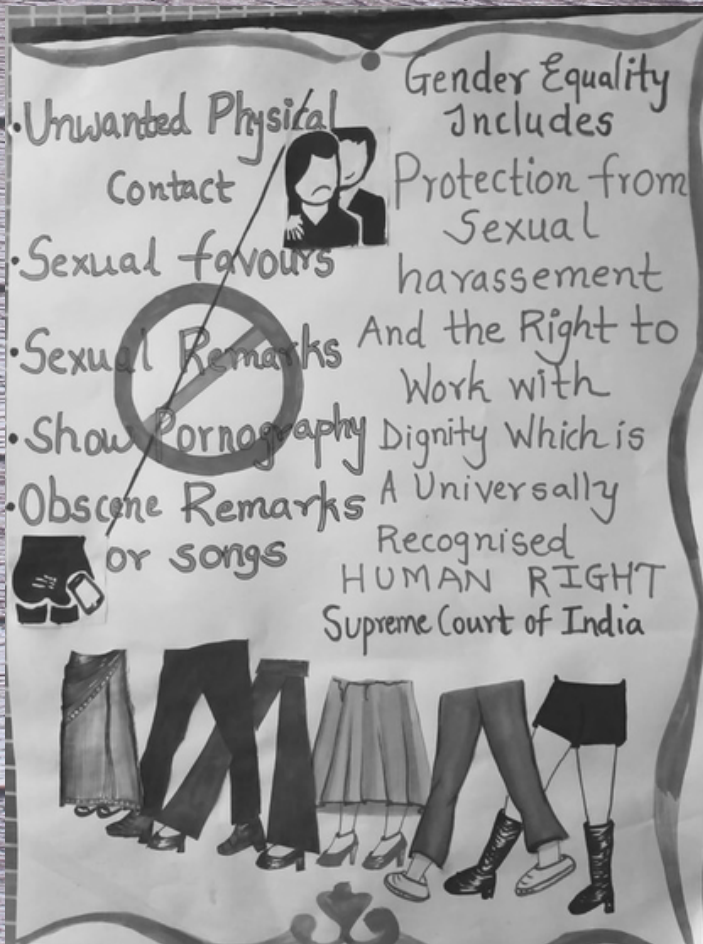 • Unwanted Physical
Contact
• Sexual favours
• Sexual Remarks
• Show Pornography
• Obscene Remarks
or songs
Gender Equality
Includes
Protection from
Sexual
harassement
And the Right to
Work with
Dignity Which is
A Universally
Recognised
HUMAN RIGHT
Supreme Court of India